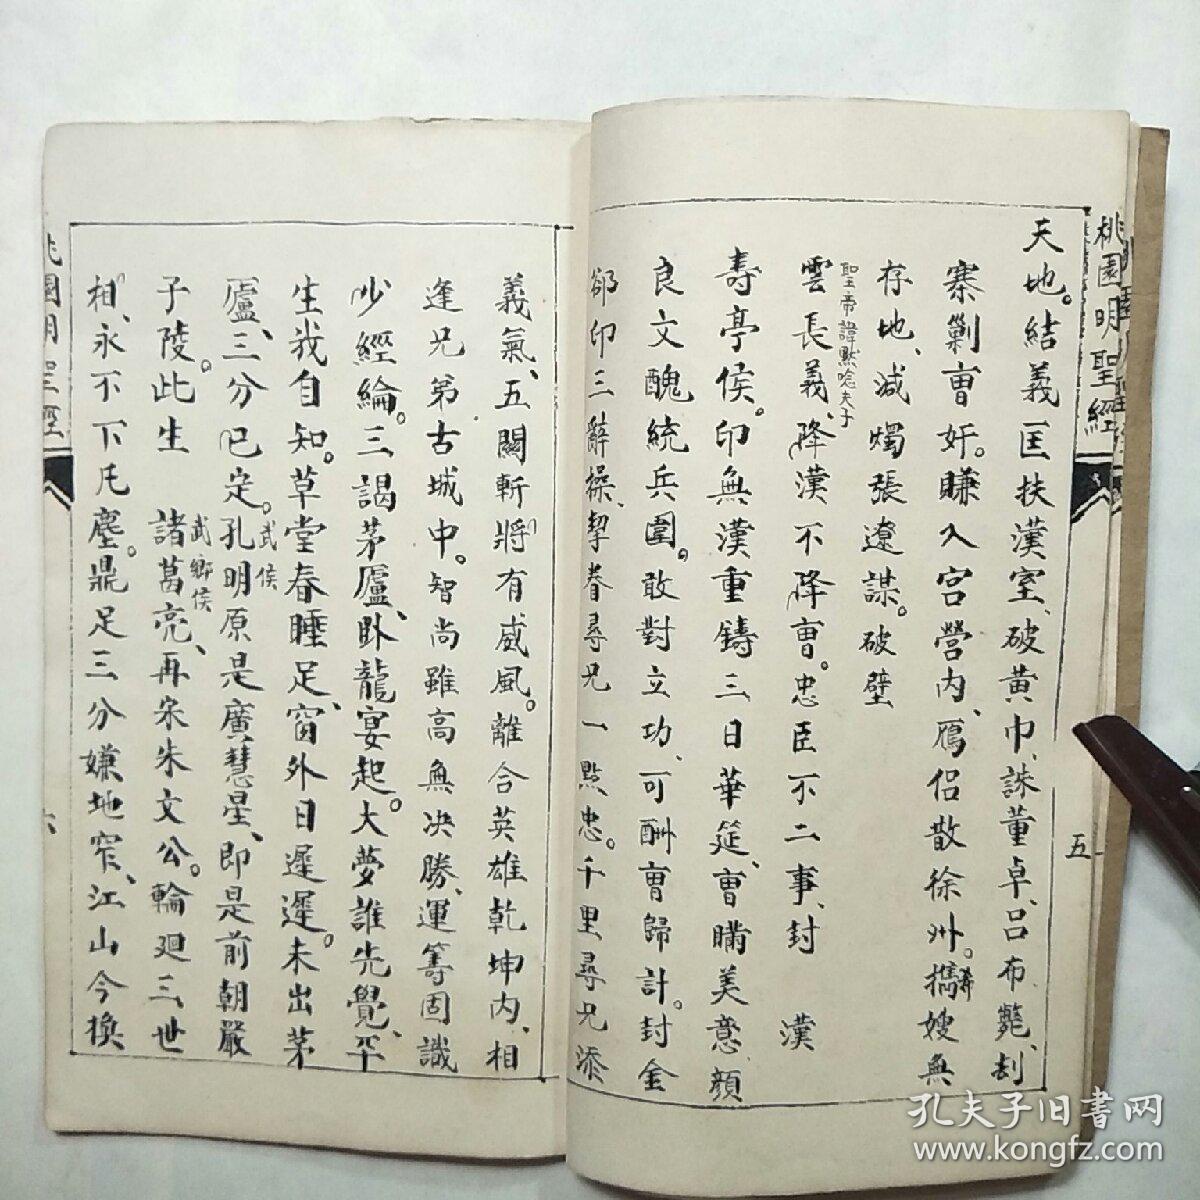 桃園明聖經
五
天地。結義匡扶漢室、破黃巾、誅董卓、呂布斃、刮
寨剿曹奸。賺入宮營內、鴈侶散徐州。攜嫂無
存地、滅燭張遼謀。破壁
聖帝諱默唸夫子
雲長義、降漢不降曹。忠臣不二事、封 漢
壽亭侯。印無漢重鑄三日華筵、曹瞞美意顏
良文醜統兵圍。敢對立功、可酬曹歸計。封金
卻印三辭操、挈眷尋兄一點忠。千里尋兄添
義氣、五關斬將有威風。離合英雄乾坤內、相
逢兄弟古城中。智尚雖高無決勝、運籌固識
少經綸。三謁茅廬、臥龍宴起。大夢誰先覺、平
生我自知。草堂春睡足、窗外日遲遲。未出茅
廬、三分已定。孔明原是廣慧星、即是前朝嚴
武侯
子陵。此生 諸葛亮、再宋朱文公。輪迴三世
武鄉侯
相、永不下凡塵。鼎足三分嫌地窄、江山今換
桃園明聖經
六
孔夫子旧書网
www.kongfz.com